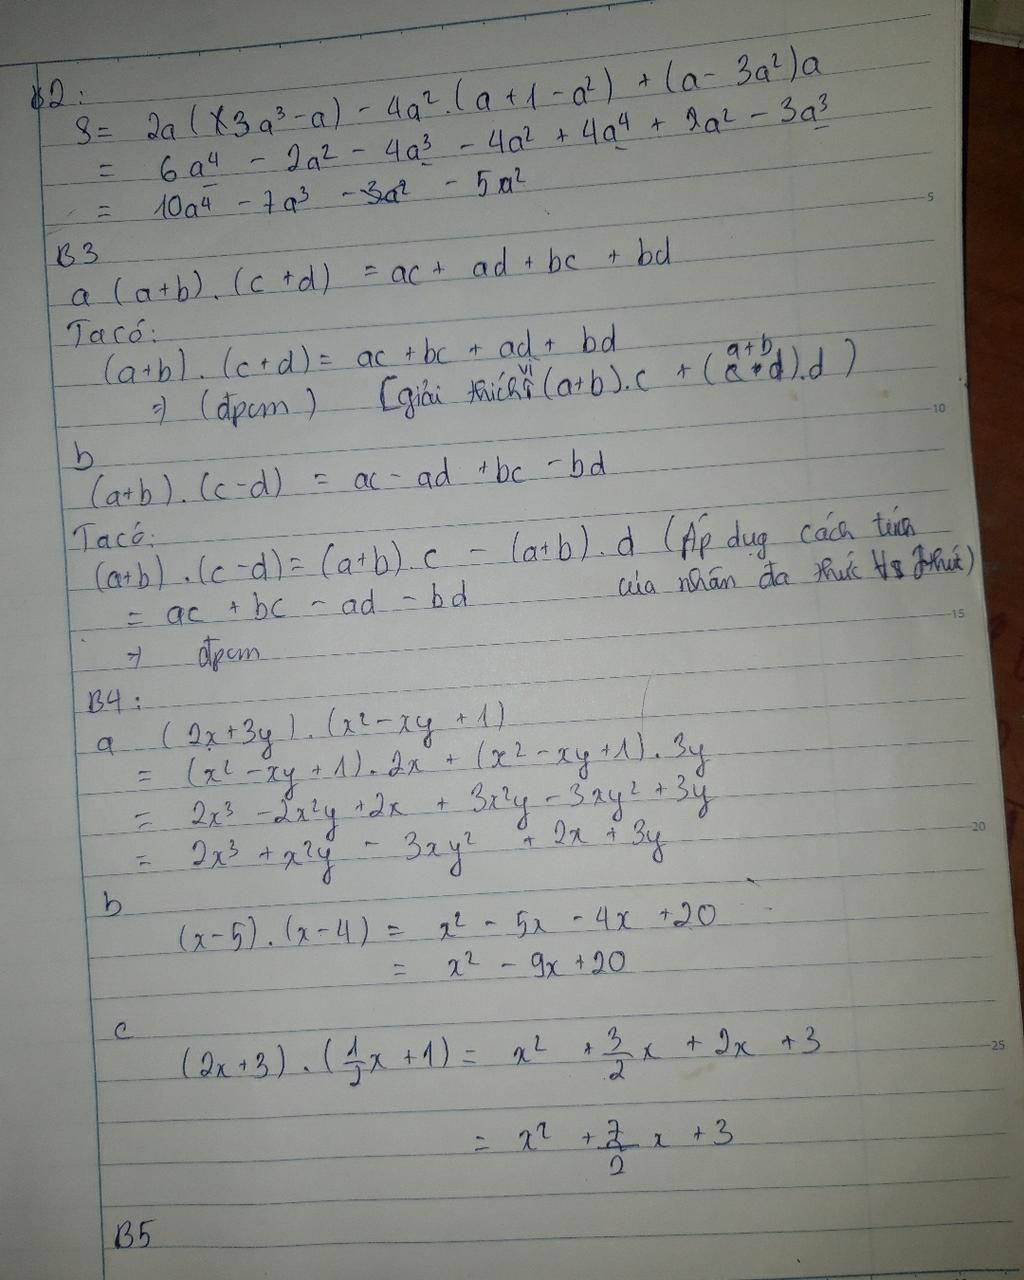 B2:
S = 2a (3a³ - a) - 4a² . (a + 1 - a²) + (a - 3a²)a
= 6a⁴ - 2a² - 4a³ - 4a² + 4a⁴ + a² - 3a³
= 10a⁴ - 7a³ - 5a²
5
B3
a (a+b) . (c+d) = ac + ad + bc + bd
Ta có:
(a+b) . (c+d) = ac + bc + ad + bd
=> (đpcm) [giải thích vì (a+b).c + (a+b).d)
10
b
(a+b) . (c-d) = ac - ad + bc - bd
Ta có:
(a+b) . (c-d) = (a+b).c - (a+b).d (Áp dụg cách tính
= ac + bc - ad - bd của nhân đa thức)
15
=> đpcm
B4:
a (2x+3y) . (x² - xy + 1)
= (x² - xy + 1) . 2x + (x² - xy + 1) . 3y
= 2x³ - 2x²y + 2x + 3x²y - 3xy² + 3y
20
= 2x³ + x²y - 3xy² + 2x + 3y
b
(x-5) . (x-4) = x² - 5x - 4x + 20
= x² - 9x + 20
c
(2x+3) . (1/2 x + 1) = x² + 3/2 x + 2x + 3
25
= x² + 7/2 x + 3
B5